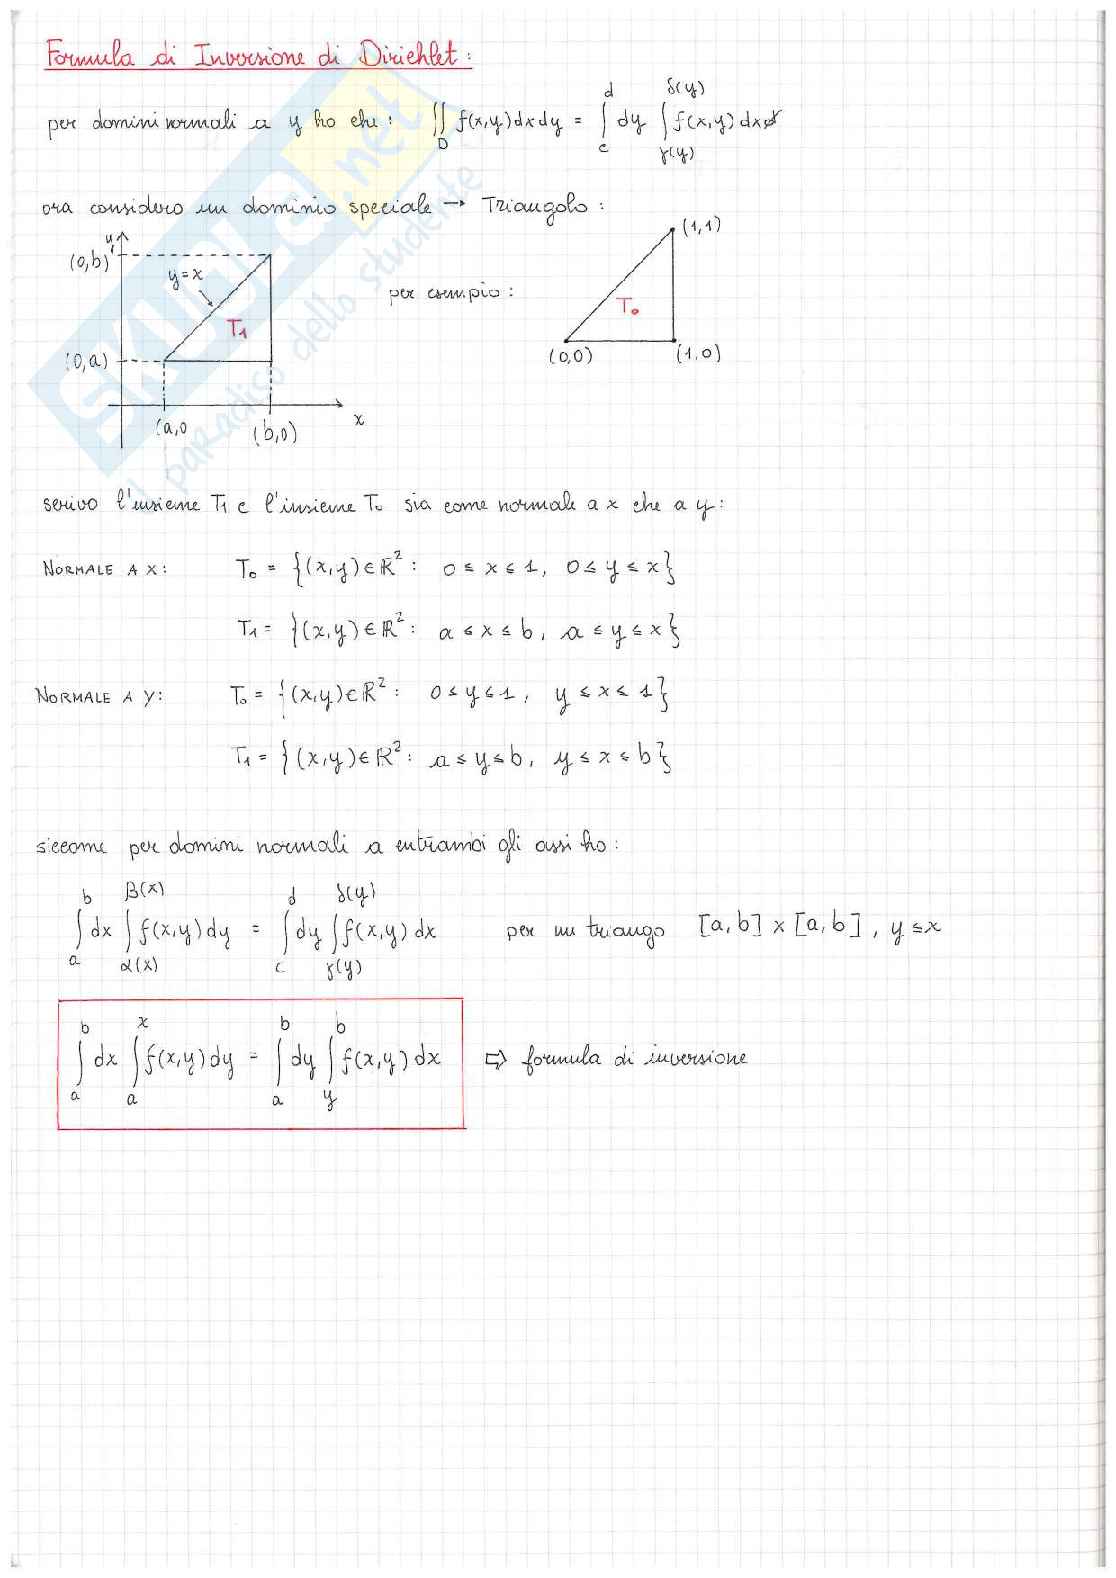 Formula di Inversione di Dirichlet:
per domini normali a y ho che: ∬_D f(x,y)dxdy = ∫_c^d dy ∫_γ(y)^δ(y) f(x,y) dx
ora considero un dominio speciale → Triangolo:
y
(0,b)
y=x
T₁
(0,a)
(a,0
(b,0)
x
per esempio:
(1,1)
T₀
(0,0)
(1,0)
scrivo l'insieme T₁ e l'insieme T₀ sia come normale a x che a y:
NORMALE A X: T₀ = {(x,y)∈ℝ²: 0 ≤ x ≤ 1, 0 ≤ y ≤ x}
T₁ = {(x,y)∈ℝ²: a ≤ x ≤ b, a ≤ y ≤ x}
NORMALE A Y: T₀ = {(x,y)∈ℝ²: 0 ≤ y ≤ 1, y ≤ x ≤ 1}
T₁ = {(x,y)∈ℝ²: a ≤ y ≤ b, y ≤ x ≤ b}
siccome per domini normali a entrambi gli assi ho:
∫_a^b dx ∫_α(x)^β(x) f(x,y) dy = ∫_c^d dy ∫_γ(y)^δ(y) f(x,y) dx per un triango [a,b] × [a,b], y ≤ x
∫_a^b dx ∫_a^x f(x,y) dy = ∫_a^b dy ∫_y^b f(x,y) dx ⇨ formula di inversione
SKUOLA.net
il paradiso dello studente